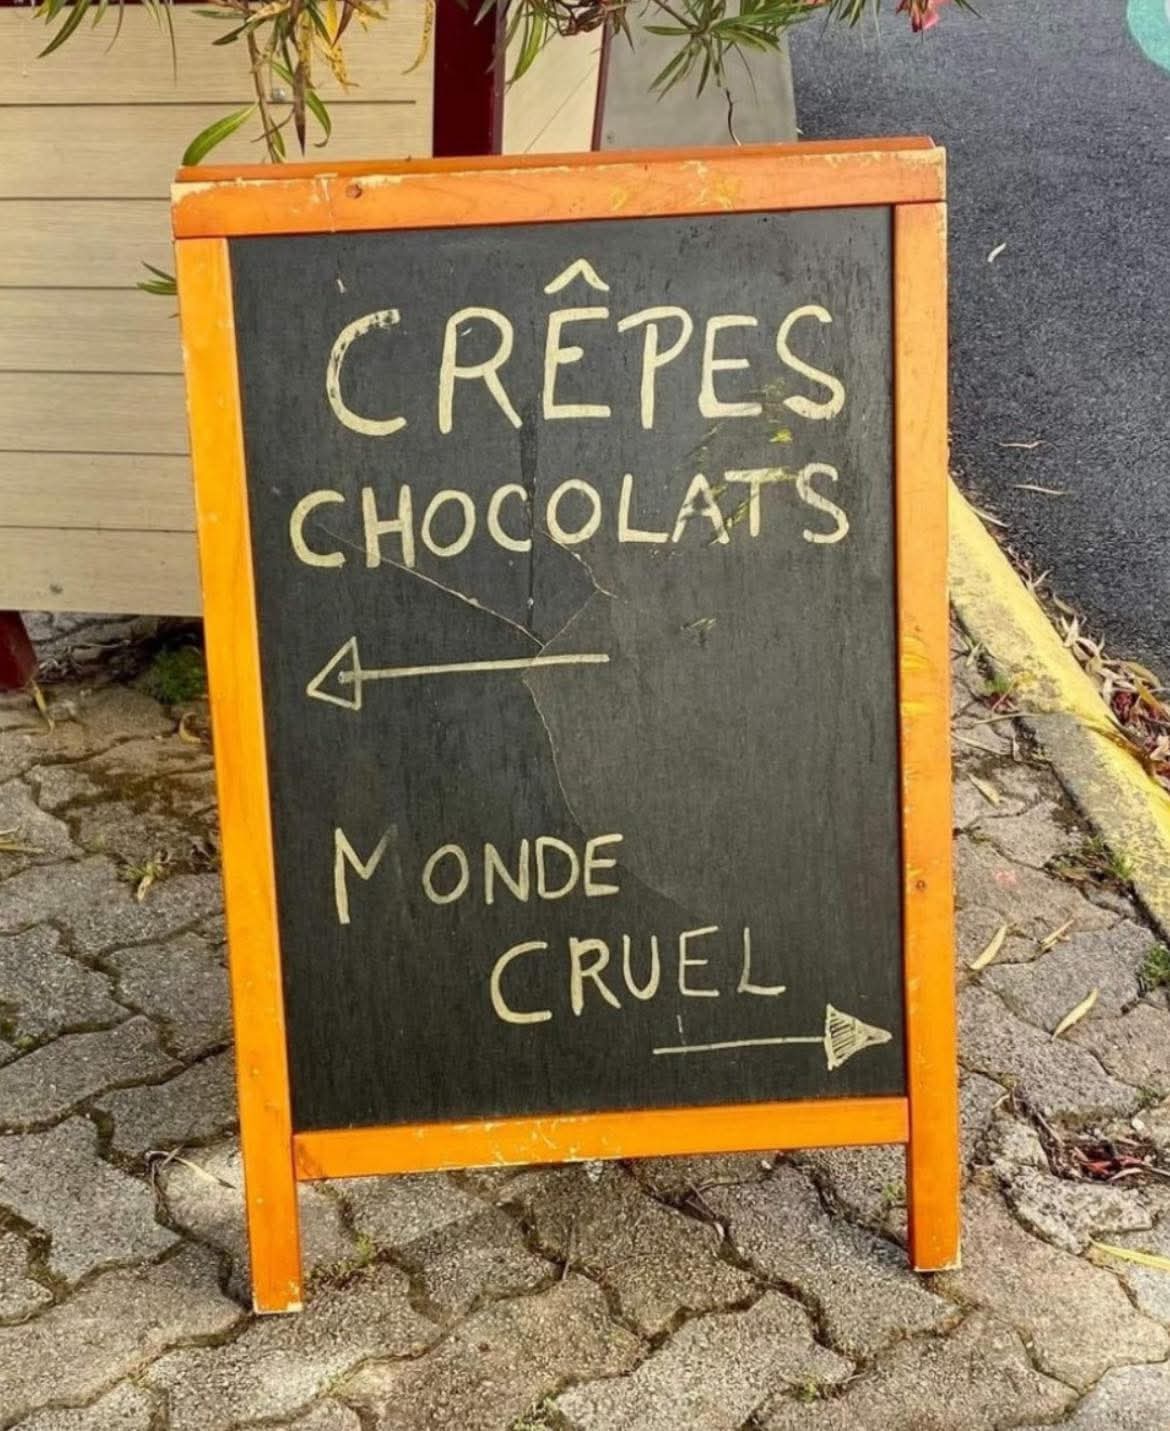 CRÊPES
CHOCOLATS
MONDE
CRUEL